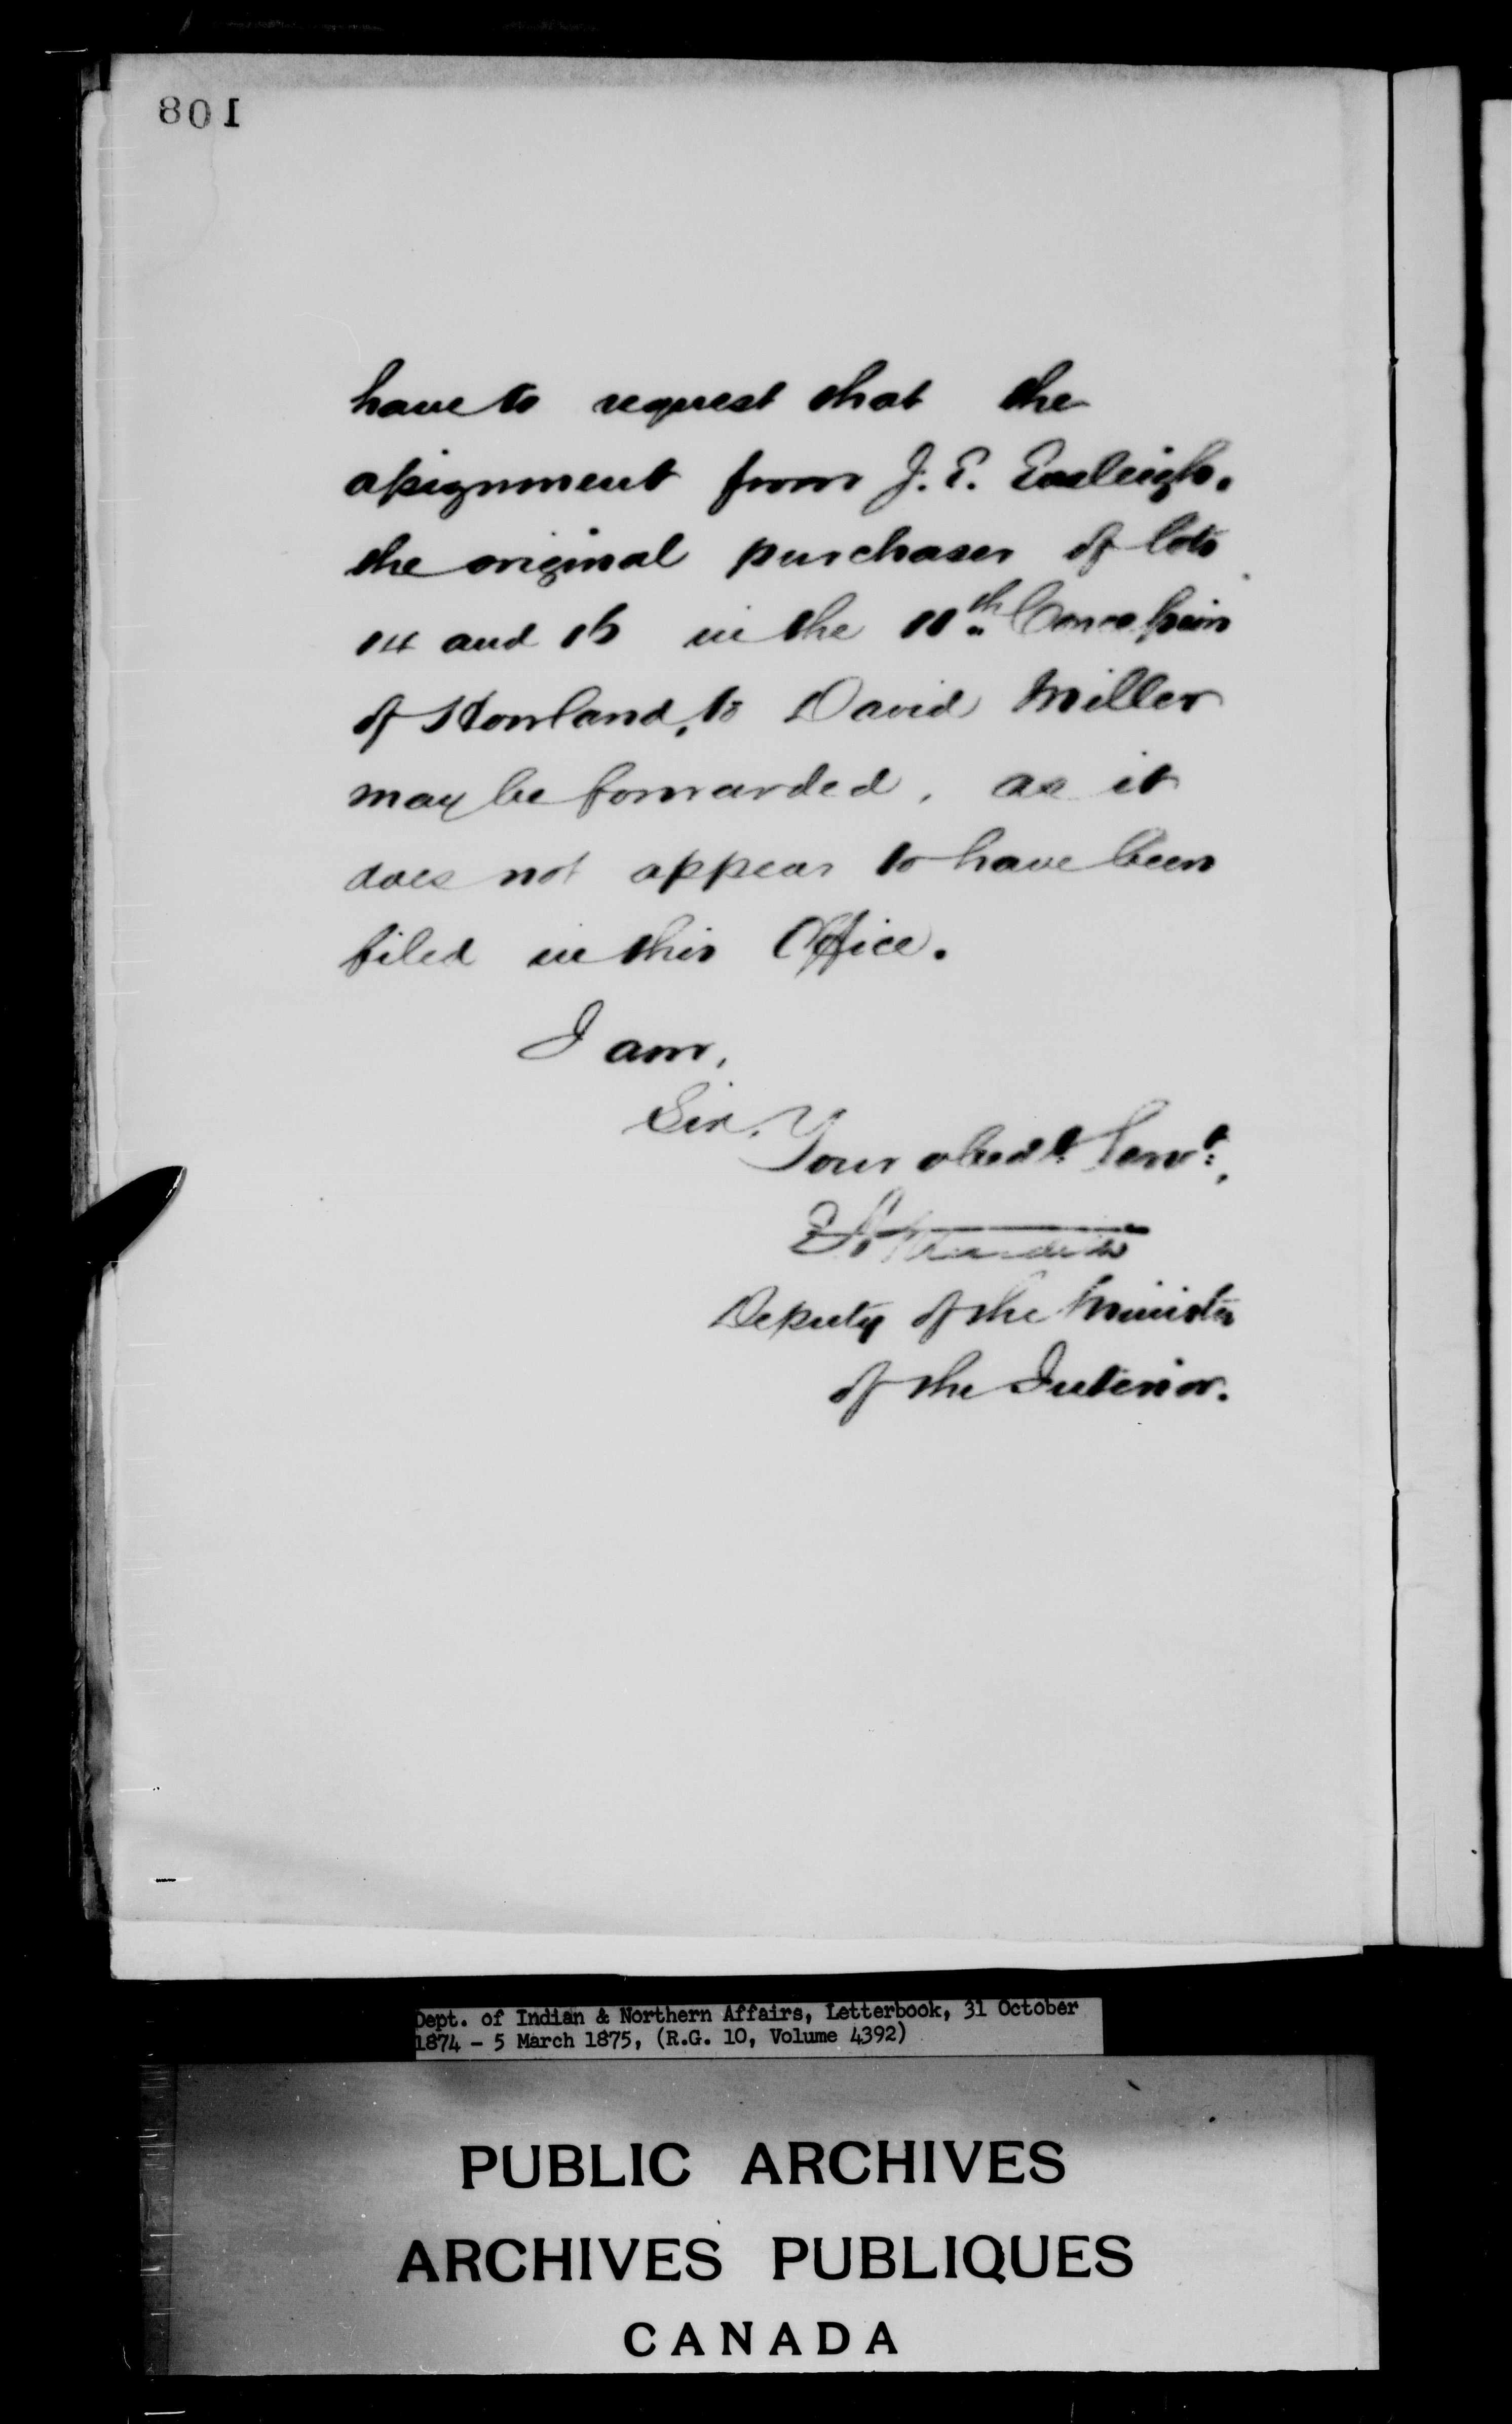 108
have to request that the
assignment from J. E. Easleigh,
the original purchaser of lots
14 and 15 in the 11th Concession
of Howland, to David Miller
may be forwarded, as it
does not appear to have been
filed in this Office.
I am,
Sir,
Your obedt Servt,
Deputy of the Minister
of the Interior.
Dept. of Indian & Northern Affairs, Letterbook, 31 October
1874 - 5 March 1875, (R.G. 10, Volume 4392)
PUBLIC ARCHIVES
ARCHIVES PUBLIQUES
CANADA